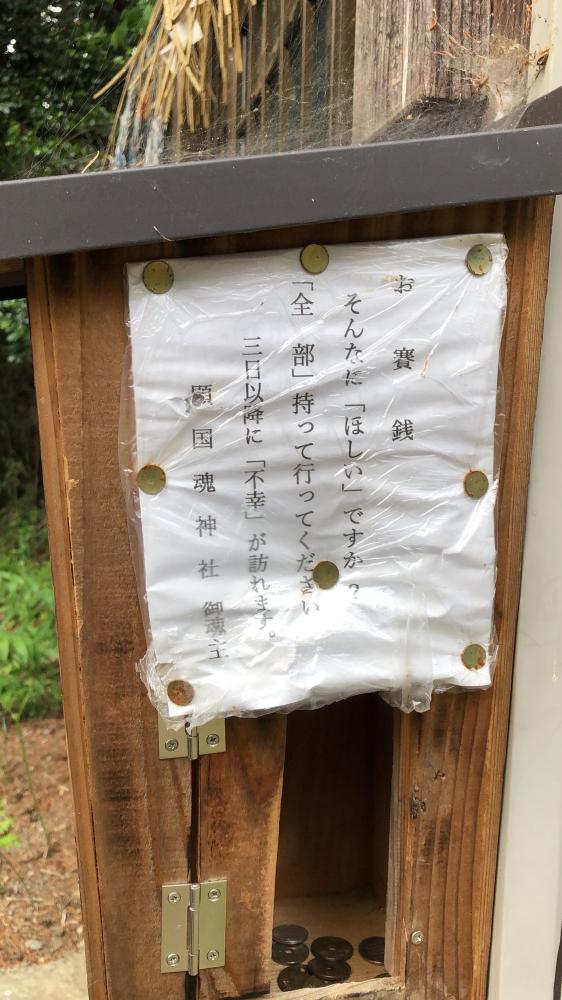 お賽銭
そんなに「ほしい」ですか?
「全部」持って行ってください
三日以降に「不幸」が訪れます。
願国魂神社 御魂主